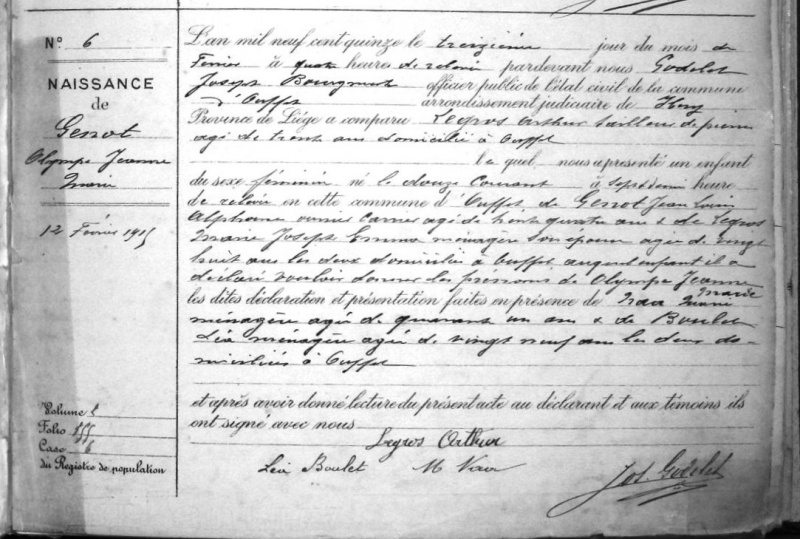 N° 6
NAISSANCE
de
Genot
Olympe Jeanne
Marie
12 Février 1915
Volume
Folio
Case 6
du Registre de population
L'an mil neuf cent quinze le treizième jour du mois de
Février à quatre heures de relevée pardevant nous Godelet
Joseph Bourgmestre officier public de l'état civil de la commune
d'Ouffet arrondissement judiciaire de Huy
Province de Liége a comparu Legros Arthur tailleur de pierres
agé de trente ans domicilié à Ouffet
le quel nous a présenté un enfant
du sexe féminin né le douze courant à sept heure
de relevée en cette commune d'Ouffet de Genot Jean Louis
Alphonse ouvrier carrier agé de trente quatre ans & de Legros
Marie Joseph Emma ménagère son épouse agée de vingt
huit ans les deux domiciliés à Ouffet auquel enfant il a
déclaré vouloir donner les prénoms de Olympe Jeanne
Marie
les dites déclaration et présentation faites en présence de Marie
ménagère agée de quarante un ans & de Boulet
Léa ménagère agée de vingt neuf ans les deux do-
miciliées à Ouffet
et après avoir donné lecture du présent acte au déclarant et aux témoins ils
ont signé avec nous
Legros Arthur
Léa Boulet M
Jos. Godelet